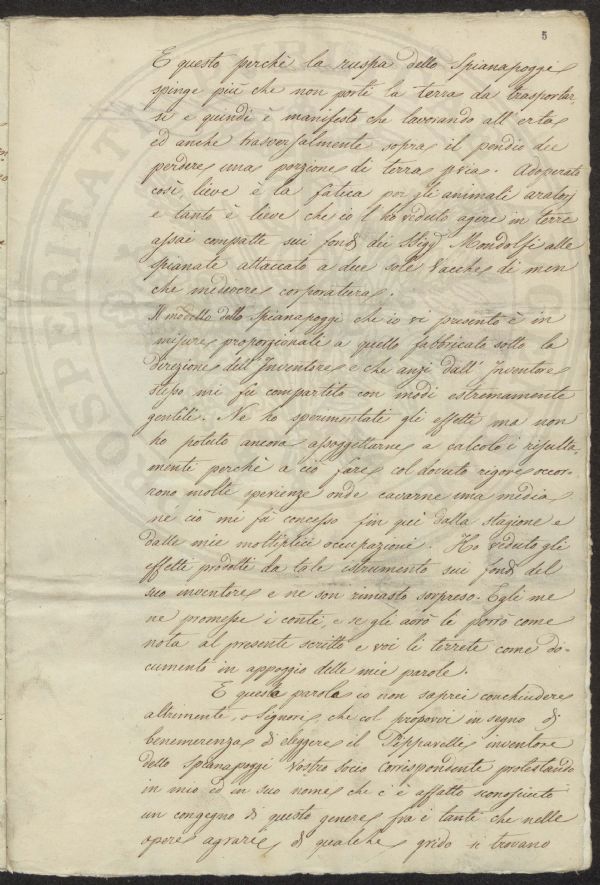 5
E questo perchè la ruspa dello Spianapoggi
spinge più che non porti la terra da trasportar-
si e quindi è manifesto che lavorando all'erta
ed anche trasversalmente sopra il pendio dee
perdere una porzione di terra pria. Adoperato
così lieve è la fatica per gli animali aratorj
e tanto è lieve che io l'ho veduto agere in terre
assai compatte sui fondi dei SSigg Mondolfi alle
spianate attaccato a due sole vacche di men
che mediocre corporatura.
Il modello dello Spianapoggi che io vi presento è in
misure proporzionale a quello fabbricato sotto la
direzione dell'Inventore e che anzi dall'Inventore
stesso mi fu compartito con modi estremamente
gentili. Ne ho sperimentati gli effetti ma non
ho potuto ancora assoggettarne a calcolo i risulta-
menti perchè a ciò fare col dovuto rigore occor-
rono molte sperienze onde cavarne una media
nè ciò mi fu concesso fin qui dalla stagione e
dalle mie moltiplici occupazioni. Ho veduto gli
effetti prodotti da tale istrumento sui fondi del
suo inventore e ne son rimasto sorpreso. Egli me
ne promesse i conti, e se gli avrò li porrò come
nota al presente scritto e voi li terrete come do-
cumento in appoggio delle mie parole.
E questa parola io non saprei conchiudere
altrimenti, o Signori, che col proporvi in segno di
benemerenza di eleggere il Pipparelli inventore
dello Spianapoggi Vostro Socio Corrispondente protestando
in mio ed in suo nome che ci è affatto sconosciuto
un congegno di questo genere fra i tanti che nelle
opere agrarie di qualche grido si trovano